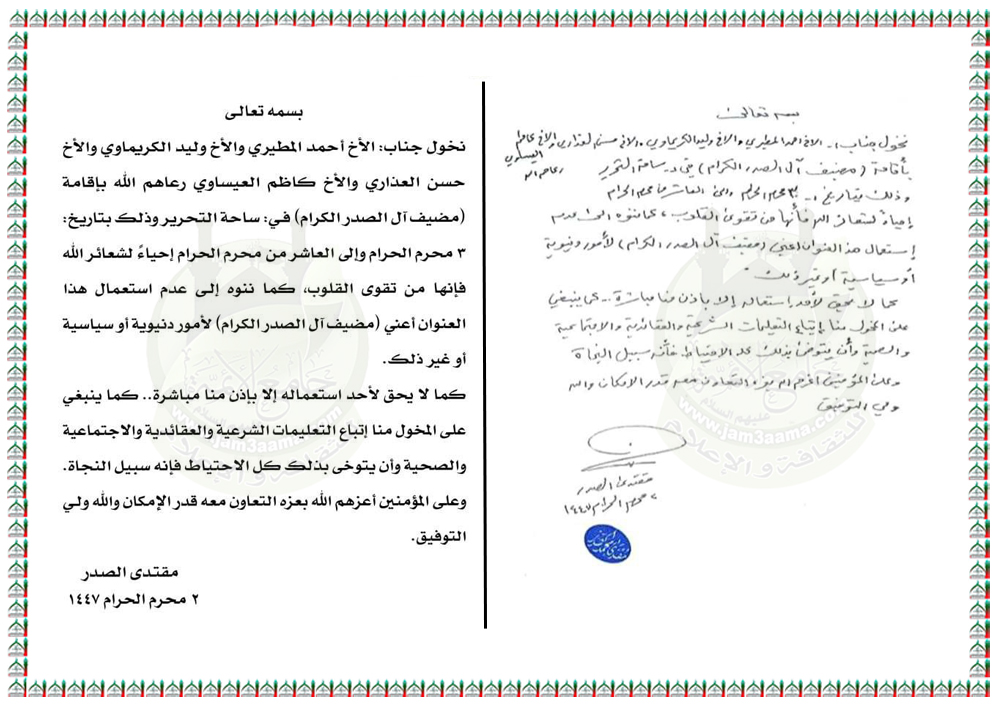 بسمه تعالى
نخول جناب:ـ الاخ احمد المطيري والاخ وليد الكريماوي والاخ حسن العذاري والاخ كاظم
العيساوي
رعاهم الله
بأقامة (مضيف آل الصدر الكرام) في:ـ ساحة التحرير
وذلك بتاريخ:ـ ٣ محرم الحرام والى العاشر من محرم الحرام
إحياءً لشعائر الله فأنها من تقوى القلوب، كما ننوه الى عدم
إستعمال هذا العنوان اعني (مضيف آل الصدر الكرام) لأمور دنيوية
أو سياسية أو غير ذلك.
كما لا يحق لأحد إستعماله إلا بإذن منا مباشرة.. كما ينبغي
على المخول منا إتباع التعليمات الشرعية والعقائدية والاجتماعية
والصحية وأن يتوخى بذلك كل الاحتياط فأنه سبيل النجاة
وعلى المؤمنين أعزهم الله بعزه التعاون معه قدر الامكان والله
ولي التوفيق
مقتدى الصدر
٢ محرم الحرام ١٤٤٧
بسمه تعالى
نخول جناب: الأخ أحمد المطيري والأخ وليد الكريماوي والأخ
حسن العذاري والأخ كاظم العيساوي رعاهم الله بإقامة
(مضيف آل الصدر الكرام) في: ساحة التحرير وذلك بتاريخ:
٣ محرم الحرام وإلى العاشر من محرم الحرام إحياءً لشعائر الله
فإنها من تقوى القلوب، كما ننوه إلى عدم استعمال هذا
العنوان أعني (مضيف آل الصدر الكرام) لأمور دنيوية أو سياسية
أو غير ذلك.
كما لا يحق لأحد استعماله إلا بإذن منا مباشرة.. كما ينبغي
على المخول منا إتباع التعليمات الشرعية والعقائدية والاجتماعية
والصحية وأن يتوخى بذلك كل الاحتياط فإنه سبيل النجاة.
وعلى المؤمنين أعزهم الله بعزه التعاون معه قدر الإمكان والله ولي
التوفيق.
مقتدى الصدر
٢ محرم الحرام ١٤٤٧
www.jam3aama.com
للثقافة و الإعلام